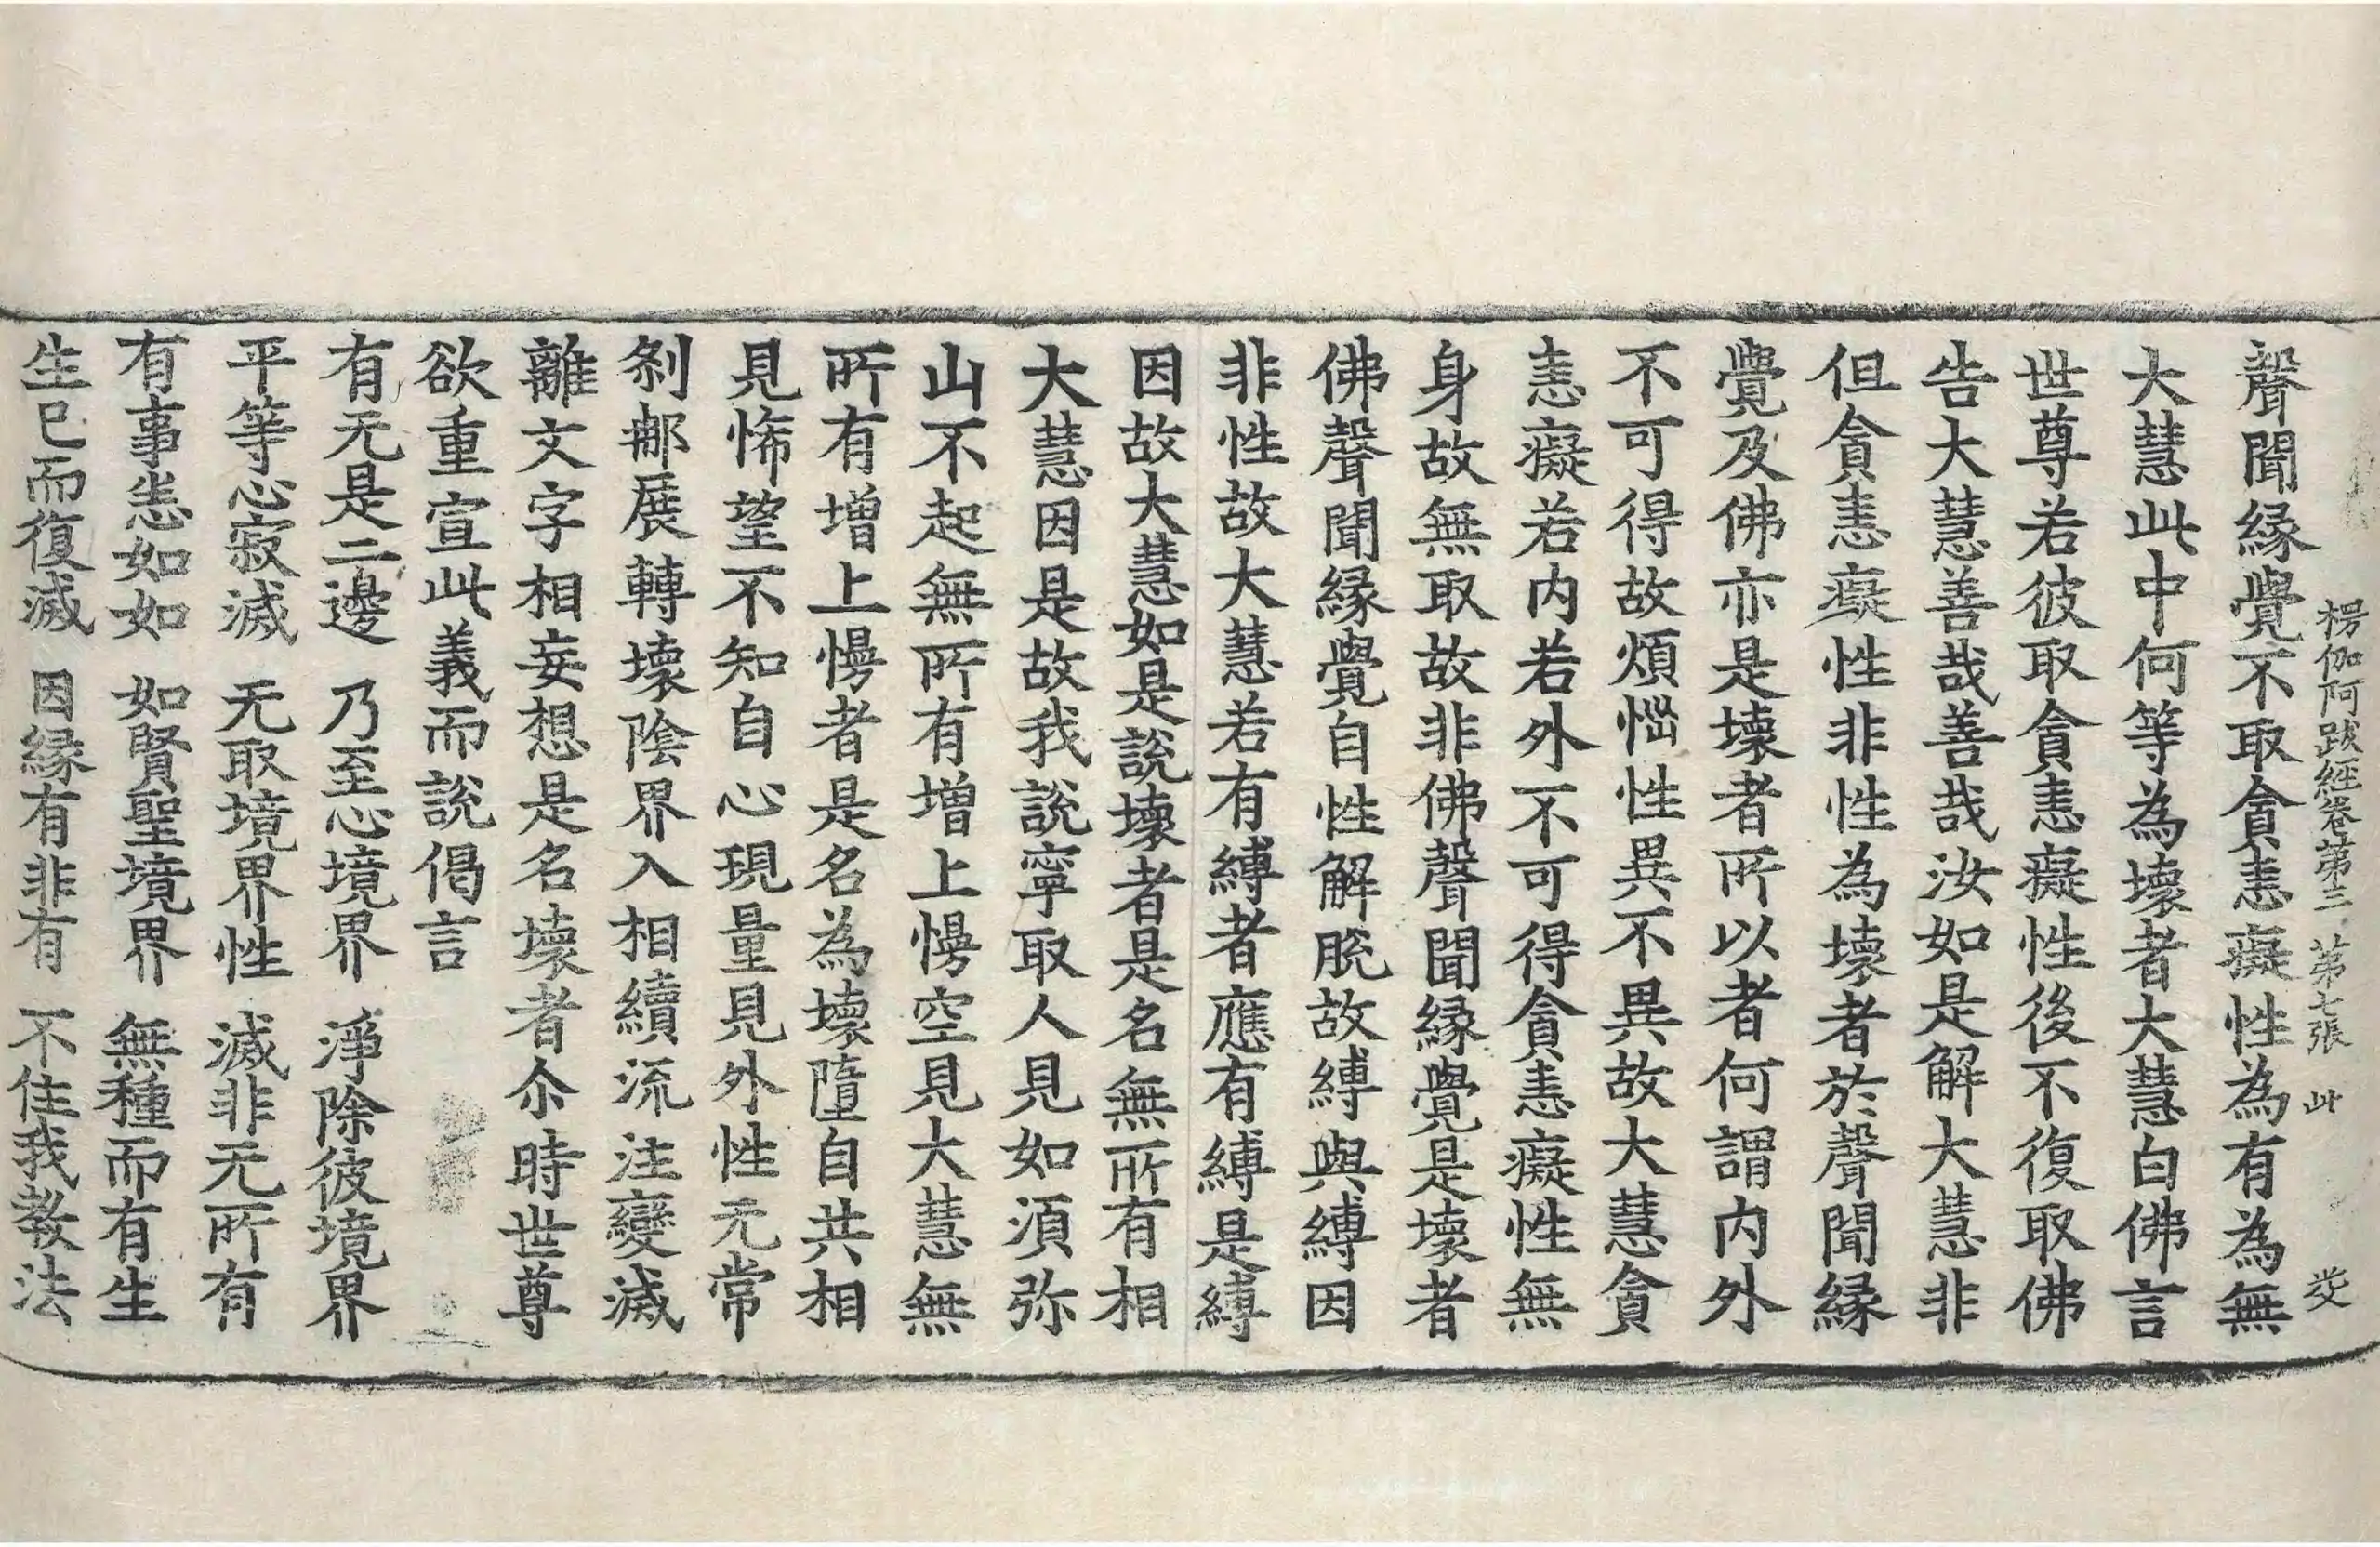 楞伽阿跋經卷第三 第七張 此
聲聞縁覺不取貪恚癡性為有為無
大慧此中何等為壞者大慧白佛言
世尊若彼取貪恚癡性後不復取佛
告大慧善哉善哉汝如是解大慧非
但貪恚癡性非性為壞者於聲聞縁
覺及佛亦是壞者所以者何謂内外
不可得故煩惱性異不異故大慧貪
恚癡若内若外不可得貪恚癡性無
身故無取故非佛聲聞縁覺是壞者
佛聲聞縁覺自性解脫故縛與縛因
非性故大慧若有縛者應有縛是縛
因故大慧如是說壞者是名無所有相
大慧因是故我說寧取人見如湏弥
山不起無所有增上慢空見大慧無
所有增上慢者是名為壞墮自共相
見悕望不知自心現量見外性无常
刹那展轉壞陰界入相續流注變滅
離文字相妄想是名壞者尒時世尊
欲重宣此義而說偈言
有无是二邊 乃至心境界 淨除彼境界
平等心寂滅 无取境界性 滅非无所有
有事悉如如 如賢聖境界 無種而有生
生已而復滅 因縁有非有 不住我教法